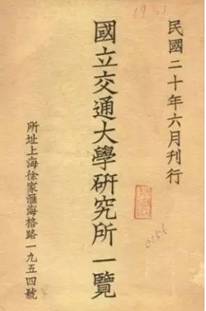 民國二十年六月刊行
國立交通大學研究所一覽
所址上海徐家滙海格路一九五四號